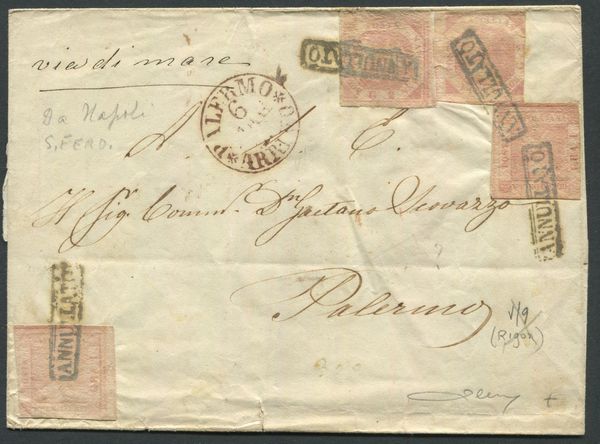 via di mare
ANNULLATO
ANNULLATO
Da Napoli
S. FERD.
PALERMO * ARRIVO *
6
A. S. E.
ANNULLATO
Il Sig. Comm. Dn Gaetano Scovazzo
?
ANNULLATO
Palermo
(Rigon)
+